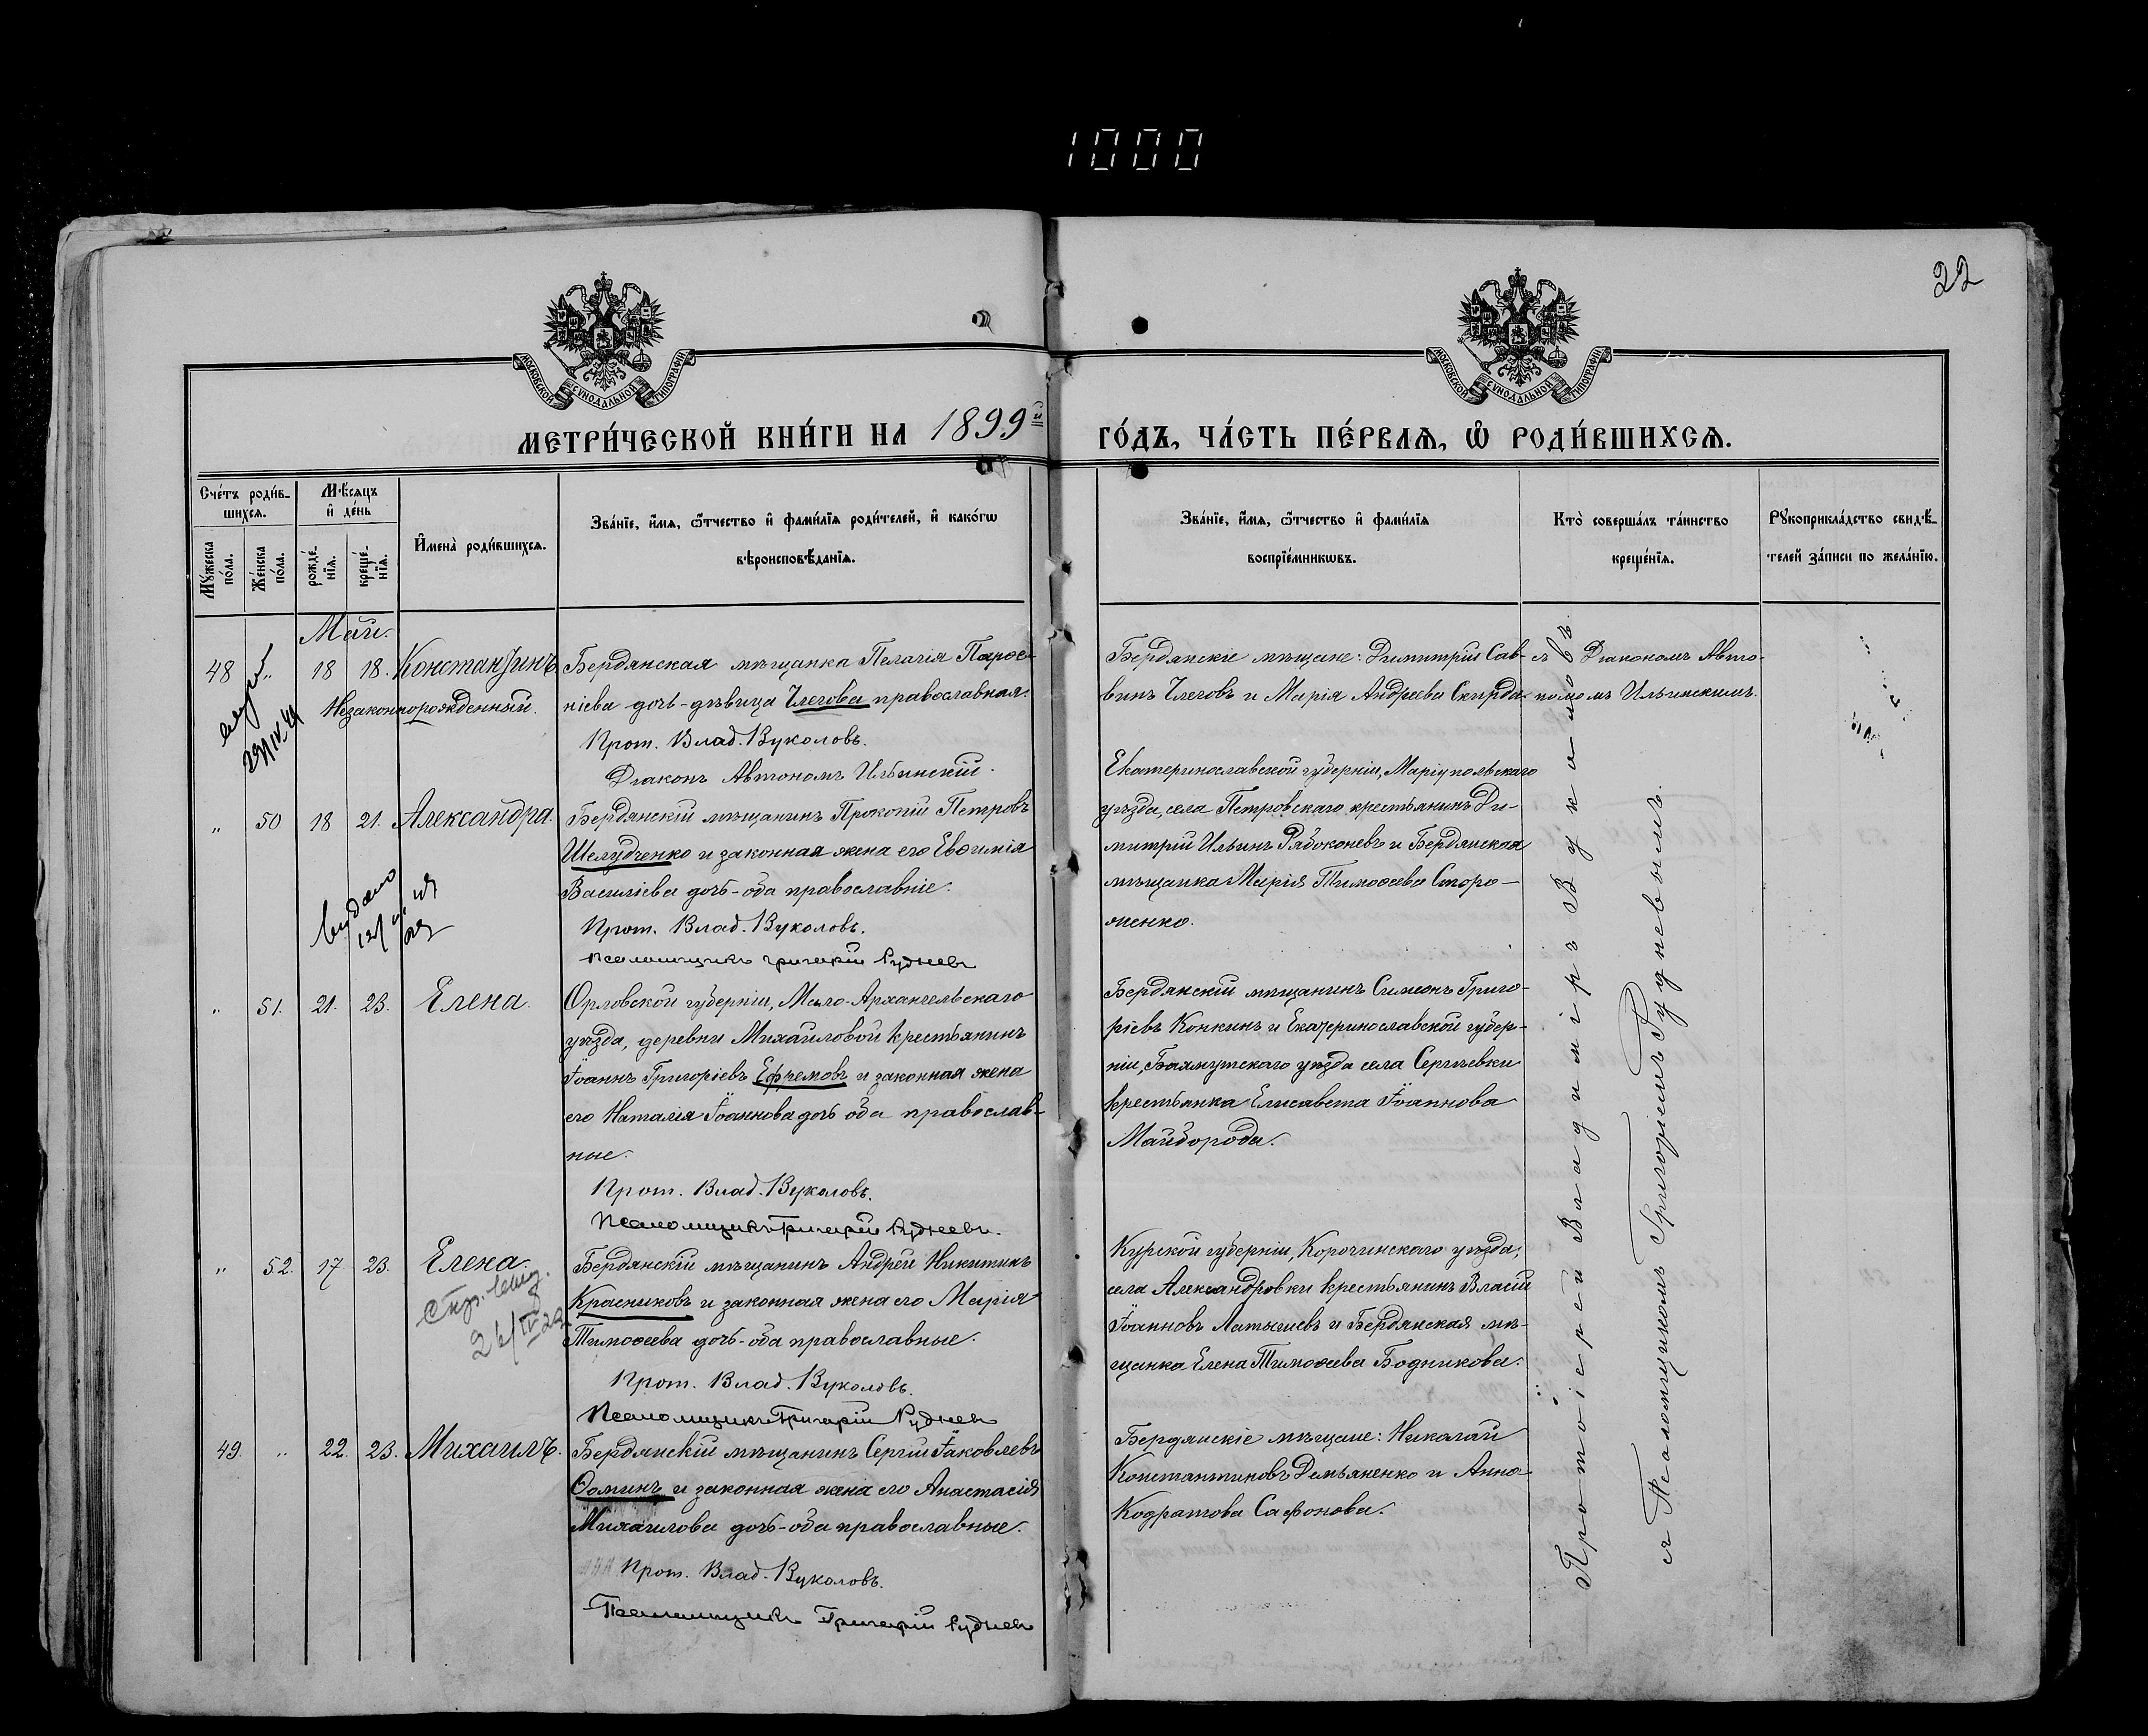 1000
22
МОСКОВСКОЙ СѴНОДАЛЬНОЙ ТИПОГРАФІИ
МОСКОВСКОЙ СѴНОДАЛЬНОЙ ТИПОГРАФІИ
МЕТРИ́ЧЕСКОЙ КНИ́ГИ НА 1899й
ГО́ДЪ, ЧА́СТЬ ПЕ́РВАЯ, Ѽ РОДИ́ВШИХСЯ.
Сче́тъ роди́в-
шихся.
Мѣ́сяцъ
и҆ де́нь
Мꙋ́жеска
по́ла.
Же́нска
по́ла.
рожде́-
нїя.
креще́-
нїя.
И҆мена̀ роди́вшихся.
Зва́нїе, и҆́мя, ѻ҆́тчество и҆ фами́лїя роди́телей, и҆ како́гѡ
вѣроисповѣ́данїя.
Зва́нїе, и҆́мя, ѻ҆́тчество и҆ фами́лїя
воспрїе́мникѡвъ.
Кто̀ соверша́лъ та́инство
креще́нїя.
Рꙋкоприкла́дство свидѣ́-
телей за́писи по жела́нїю.
Май.
48 „ 18 18. Константинъ.
Незаконнорожденный.
Бердянская мѣщанка Пелагія
кіева дочь-дѣвица Чегова православная.
Прот. Влад. Вуколовъ.
Діаконъ Автономъ Ильинскій.
Бердянскіе мѣщане: Димитрій Сав-
винъ Чеговъ и Марія Андреева Скирда
съ Діакономъ Авто-
номомъ Ильинскимъ.
„ 50 18 21. Александра.
выдано
Бердянскій мѣщанинъ Прокопій Петровъ
Шелудченко и законная жена его Евѳимія
Василіева дочь-оба православніе.
Прот. Влад. Вуколовъ.
Псаломщикъ Григорій Рудневъ
Екатеринославской губерніи, Маріупольскаго
уѣзда, села Петровскаго крестьянинъ Ди-
митрій Ильинъ Рябоконевъ и Бердянская
мѣщанка Марія Тимоѳеева Сторо-
женко.
„ 51. 21. 23. Елена.
Орловской губерніи, Мало-Архангельскаго
уѣзда, деревни Михайловой крестьянинъ
Іоаннъ Григоріевъ Ефремовъ и законная жена
его Наталія Іоаннова дочь оба православ-
ные.
Прот. Влад. Вуколовъ.
Псаломщикъ Григорій Рудневъ.
Бердянскій мѣщанинъ Симеонъ Григо-
ріевъ Конкинъ и Екатеринославской губер-
ніи, Бахмутскаго уѣзда села Сергіевки
крестьянка Елисавета Іоаннова
Майборода.
„ 52. 17 23. Елена.
Бердянскій мѣщанинъ Андрей Никитинъ
Красниковъ и законная жена его Марія
Тимоѳеева дочь-оба православные.
Прот. Влад. Вуколовъ.
Псаломщикъ Григорій Рудневъ
Курской губерніи, Корочинскаго уѣзда,
села Александровки крестьянинъ Власій
Іоанновъ Латышевъ и Бердянская мѣ-
щанка Елена Тимоѳеева Бодникова.
49. „ 22. 23. Михаилъ.
Бердянскій мѣщанинъ Сергій Іаковлевъ
Ѳоминъ и законная жена его Анастасія
Михаилова дочь-оба православные.
Прот. Влад. Вуколовъ.
Псаломщикъ Григорій Рудневъ
Бердянскіе мѣщане: Николай
Константиновъ Демьяненко и Анна
Кодратова Сафонова.
Протоіерей Владиміръ Вуколовъ
съ Псаломщикомъ Григоріемъ Рудневымъ.